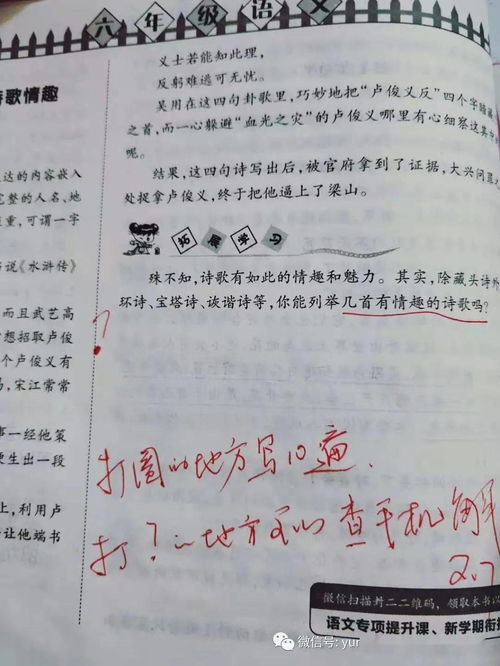 六年级语文
诗歌情趣
义士若能知此理，
反躬难逃可无忧。
吴用在这四句卦歌里，巧妙地把“卢俊义反”四个字暗
之首，而一心躲避“血光之灾”的卢俊义哪里有心细察其中
呢。
结果，这四句诗写出后，被官府拿到了证据，大兴问罪
处捉拿卢俊义，终于把他逼上了梁山。
达的内容嵌入
完整的人名、地
重，可谓一字
说《水浒传》
而且武艺高
想招取卢俊
个卢俊义有
，宋江常常
事一经他策
便生出一段
上，利用卢
让他端书
拓展学习
殊不知，诗歌有如此的情趣和魅力。其实，除藏头诗外
环诗、宝塔诗、诙谐诗等，你能列举几首有情趣的诗歌吗？
?
打圈的地方写10遍.
打？的地方可以查手机解
2.7
微信扫描
二维码，领取本书
语文专项提升课、新学期衔接
微信号: yur